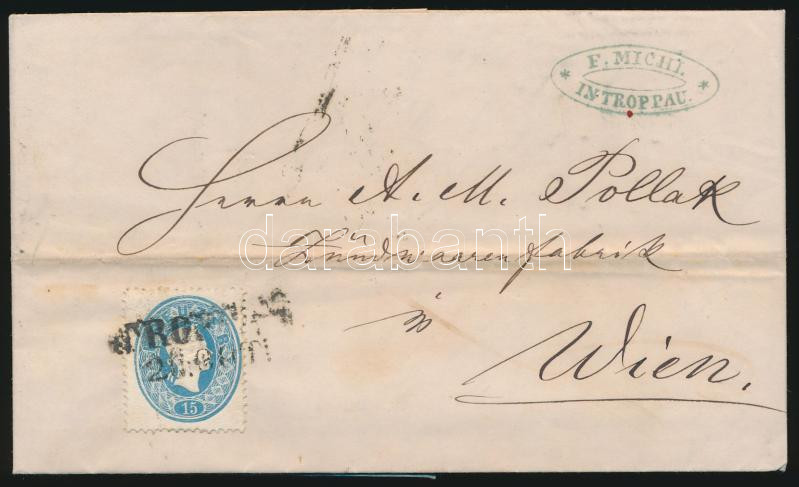 * F. MICHL *
IN TROPPAU.
Herrn A. M. Pollak
Zündwaarenfabrik
in
Wien.
darabanth
15